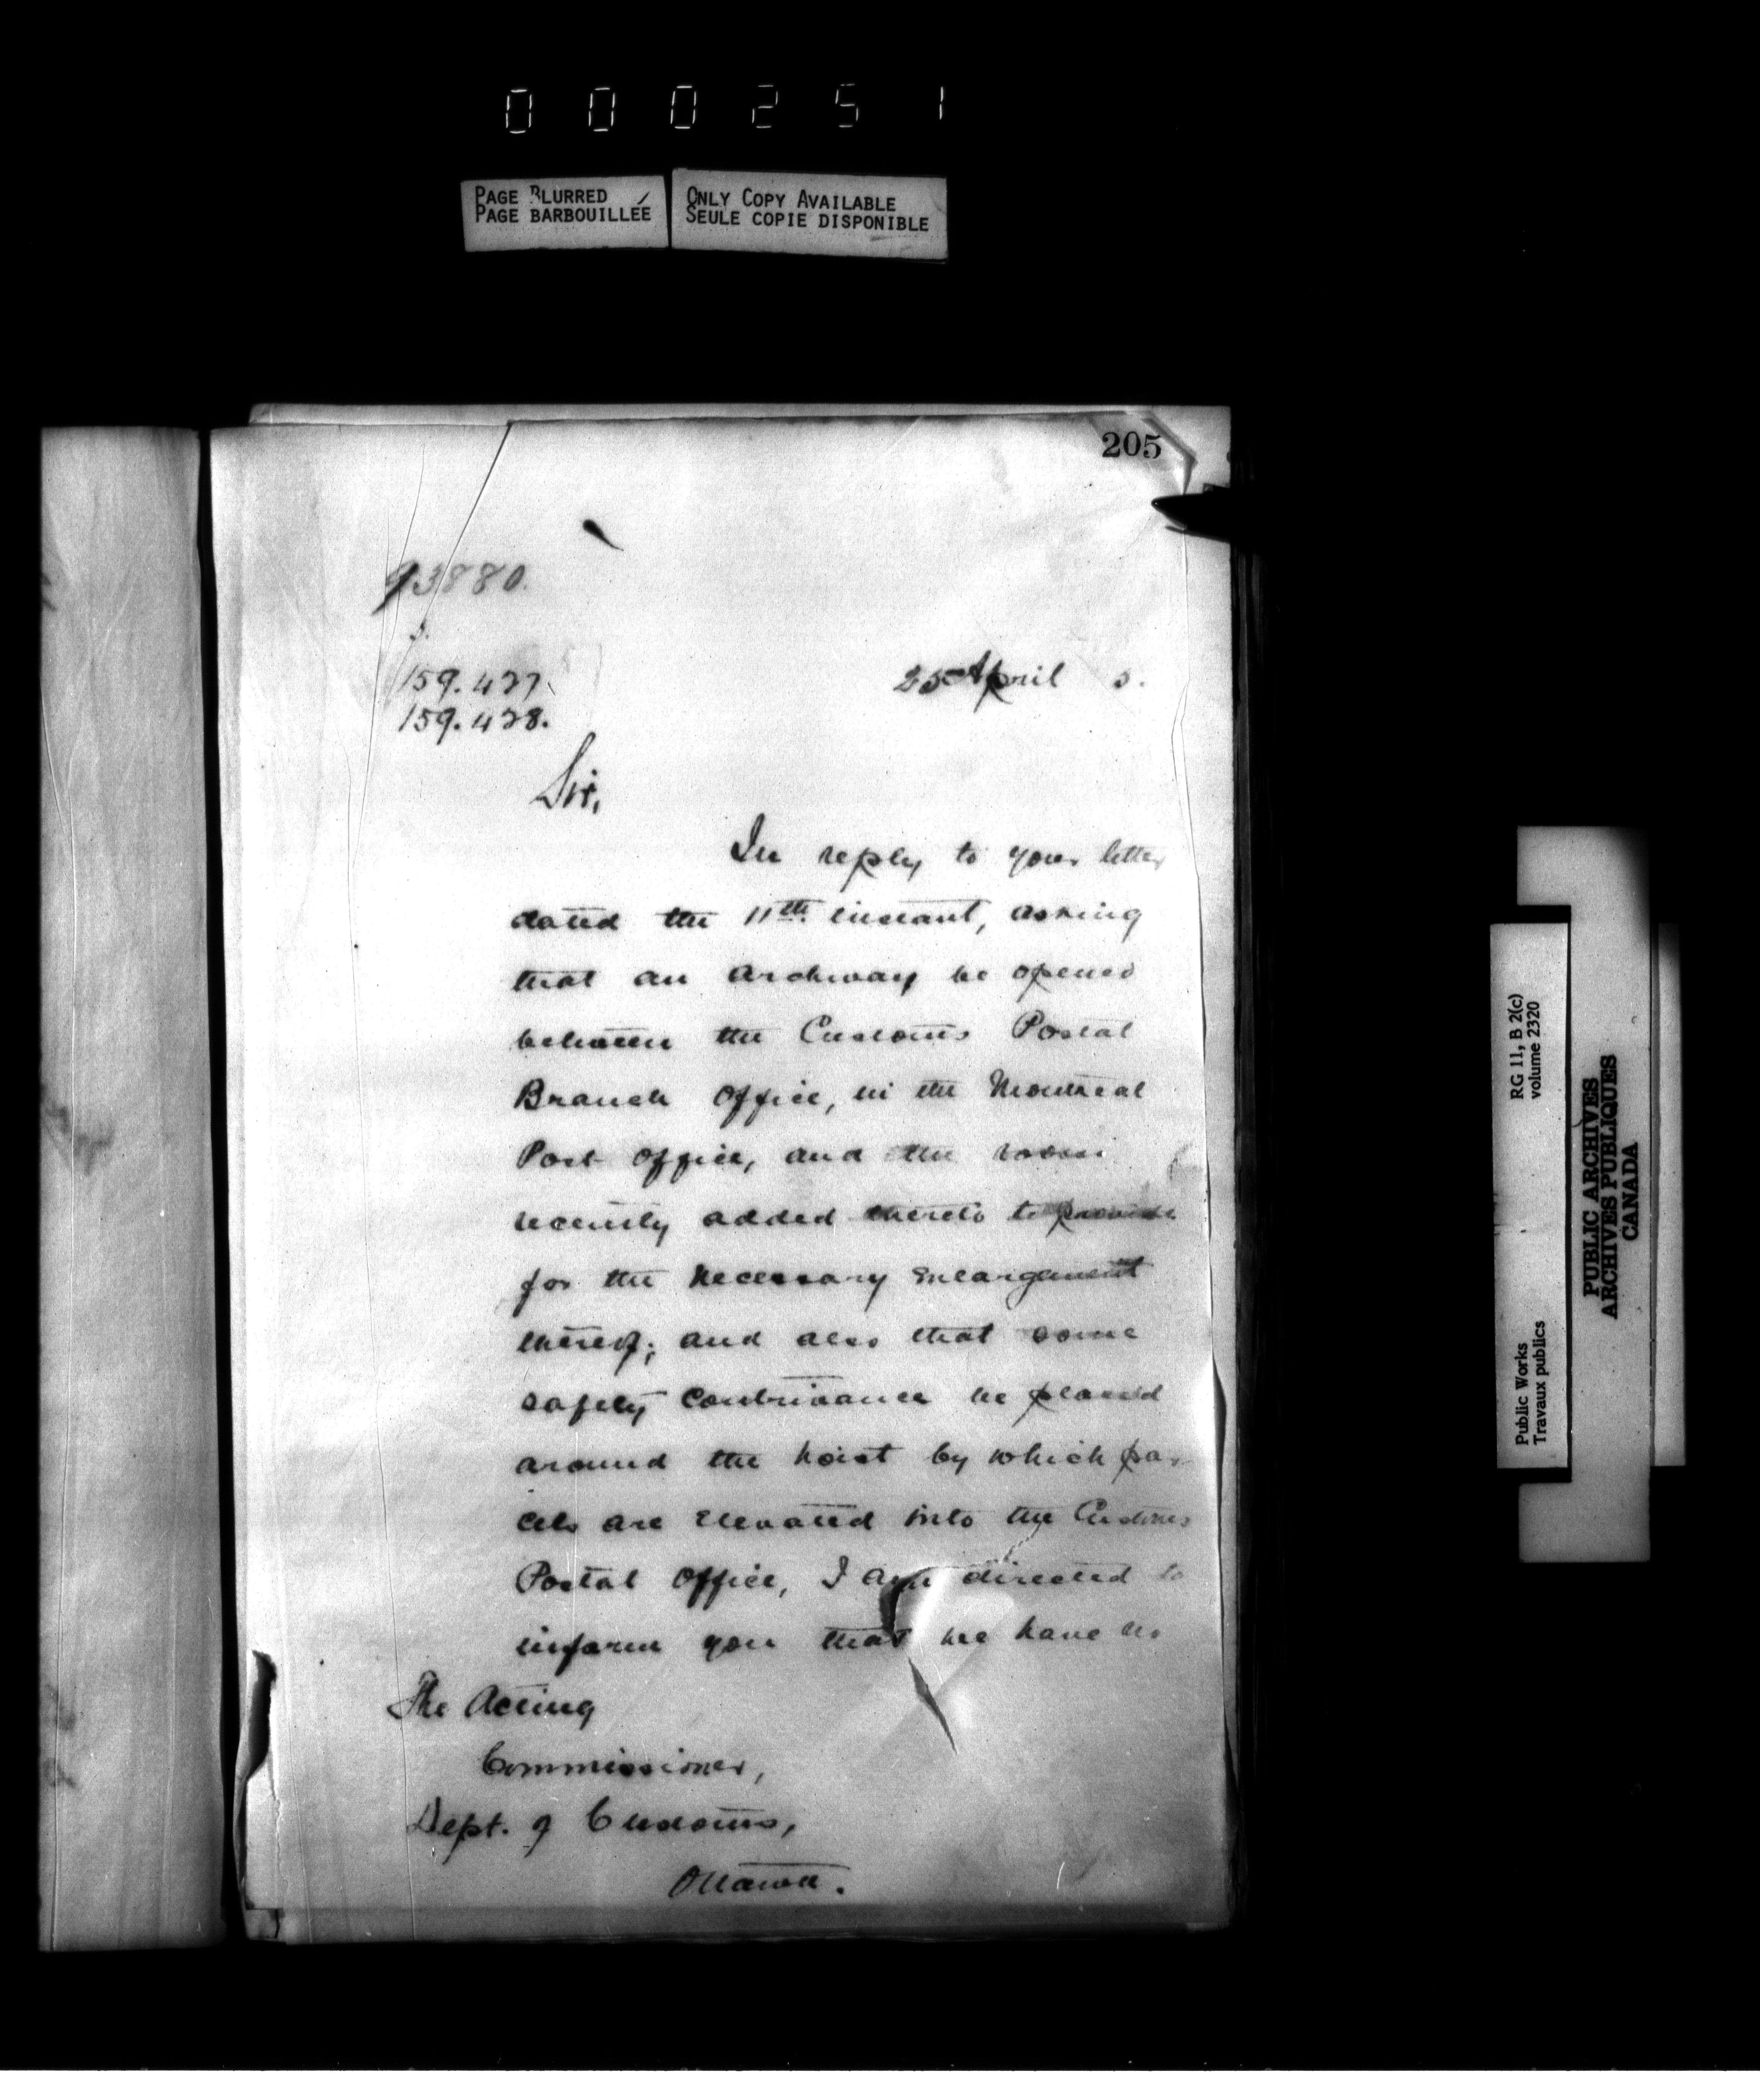 0 0 0 2 5 1
PAGE BLURRED
PAGE BARBOUILLÉE
ONLY COPY AVAILABLE
SEULE COPIE DISPONIBLE
205
93880.
159.427.
159.428.
25th April 5.
Sir,
In reply to your letter
dated the 11th instant, asking
that an archway be opened
between the Customs Postal
Branch Office, in the Montreal
Post Office, and the room
recently added thereto to provide
for the necessary enlargement
thereof; and also that some
safety contrivance be placed
around the hoist by which par
cels are elevated into the Customs
Postal Office, I am directed to
inform you that we have no
The Acting
Commissioner,
Dept. of Customs,
Ottawa.
RG 11, B 2(c)
volume 2320
Public Works
Travaux publics
PUBLIC ARCHIVES
ARCHIVES PUBLIQUES
CANADA